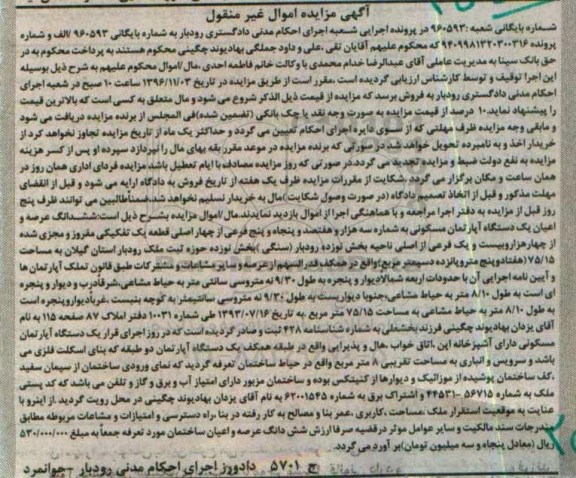 آگهی مزایده اموال غیر منقول
شماره بایگانی شعبه :۹۶۰۵۹۳ در پرونده اجرایی شعبه اجرای احکام مدنی دادگستری رودبار به شماره بایگانی ۹۶۰۵۹۳ /الف و شماره
پرونده ۹۴۰۹۹۸۱۳۲۰۳۰۰۳۱۶ که محکوم علیهم آقایان تقی ،علی و داود جملگی بهادیوند چگینی محکوم هستند به پرداخت محکوم به در
حق بانک سینا به مدیریت عاملی آقای عبدالرضا خدام محمدی با وکالت خانم فاطمه احدی ،مال /اموال محکوم علیهم به شرح ذیل بوسیله
این اجرا توقیف و توسط کارشناس ارزیابی گردیده است ،مقرر است از طریق مزایده در تاریخ ۱۳۹۶/۱۱/۰۳ ساعت ۱۰ صبح در شعبه اجرای
احکام مدنی دادگستری رودبار به فروش برسد که مزایده از قیمت ذیل الذکر شروع می شود و مال متعلق به کسی است که بالاترین قیمت
را پیشنهاد نماید.۱۰ درصد از قیمت مزایده به صورت وجه نقد یا چک بانکی (تضمین شده)فی المجلس از برنده مزایده دریافت می شود
و مابقی وجه مزایده ظرف مهلتی که از سوی دایره اجرای احکام تعیین می گردد و حداکثر یک ماه از تاریخ مزایده تجاوز نخواهد کرد از
خریدار اخذ و به نامبرده تحویل خواهد شد.در صورتی که برنده مزایده در موعد مقرر بقه بهای مال را نپردازد سپرده او پس از کسر هزینه
مزایده به نفع دولت ضبط و مزایده تجدید می گردد.در صورتی که روز مزایده مصادف با ایام تعطیل باشد مزایده فردای اداری همان روز در
همان ساعت و مکان برگزار می گردد.شکایت از مقررات مزایده ظرف یک هفته از تاریخ فروش به دادگاه ارایه می شود و قبل از انقضای
مهلت مذکور و قبل از اتخاذ تصمیم دادگاه (در صورت وصول شکایت)مال به خریدار تسلیم نخواهد شد.ضمناطالبین می توانند ظرف پنج
روز قبل از مزایده به دفتر اجرا مراجعه و با هماهنگی اجرا از اموال بازدید نمایند.مال /اموال مزایده بشرح ذیل است:ششدانگ عرصه و
اعیان یک دستگاه آپارتمان مسکونی به شماره سه هزار و هفتصد و پنجاه و پنج فرعی از چهار اصلی قطعه یک تفکیکی مفروز و مجزی شده
از چهارهزارو بیست و یک فرعی از اصلی ناحیه بخش نوزده رودبار (سنگی )بخش نوزده حوزه ثبت ملک رودبار استان گیلان به مساحت
۷۵/۱۵(هفتادوپنج مترو پانزده دسیمتر مربع)واقع در همکف قدرالسهم از عرصه و سایر مشاعات و مشترکات طبق قانون تملک آپارتمان ها
و آیین نامه اجرایی آن با حدودات اربعه شمالا دیوار و پنجره به طول ۹/۳۰ نه متروسی سانتی متر به حیاط مشاعی،شرقادرب و دیوار و پنجره
ای است به طول ۸/۱۰ متر به حیاط مشاعی،جنوبا دیواریست به طول ۹/۳۰ نه متروسی سانتیمتر به کوچه بنیست ،غربادیوار و پنجره است
به طول ۸/۱۰ متر به حیاط مشاعی به مساحت ۷۵/۱۵ متر مربع .به تاریخ ۱۳۹۳/۰۷/۱۶ طی شماره ۱۰۰۳۱ دفتر املاک ۸۷ صفحه ۱۱۵ به نام
آقای یزدان بهادیوند چگینی فرزند بخشعلی به شماره شناسنامه ۴۲۸ ثبت و صادر گردیده است که در روز اجرای قرار یک دستگاه آپارتمان
مسکونی دارای آشپزخانه اپن ،اتاق خواب ،هال و پذیرایی واقع در طبقه همکف یک دستگاه آپارتمان دو طبقه که بنای اسکلت فلزی می
باشد و سرویس و انباری به مساحت تقریبی ۸ متر مربع واقع در حیاط ساختمان تعرفه گردید که نمای ورودی ساختمان از سیمان سفید
،کف ساختمان پوشیده از موزائیک و دیوارها از کنیتکس بوده و ساختمان مزبور دارای امتیاز آب و برق و گاز و تلفن می باشد که کد پستی
ملک به شماره ۵۶۷۱۵ -۴۴۵۳۱ و اشتراک برق به شماره ۶۲۰۰۱۵۴۵ به نام آقای یزدان بهادیوند چگینی در محل رویت گردید .از اینرو با
عنایت به موقعیت استقرار ملک ،مساحت ،کاربری ،عمر بنا و مصالح به کار رفته در بنا ،راه دسترسی و امتیازات و مشاعات مربوطه مطابق
مندرجات سند مالکیت و سایر عوامل موثر درقضیه صرفا ارزش شش دانگ عرصه و اعیان ساختمان مورد تعرفه جمعا به مبلغ ۵۳۰/۰۰۰/۰۰۰
ریال (معادل پنجاه و سه میلیون تومان)بر آورد می گردد.
ج ۵۷۰۱ دادورز اجرای احکام مدنی رودبار -جوانمرد